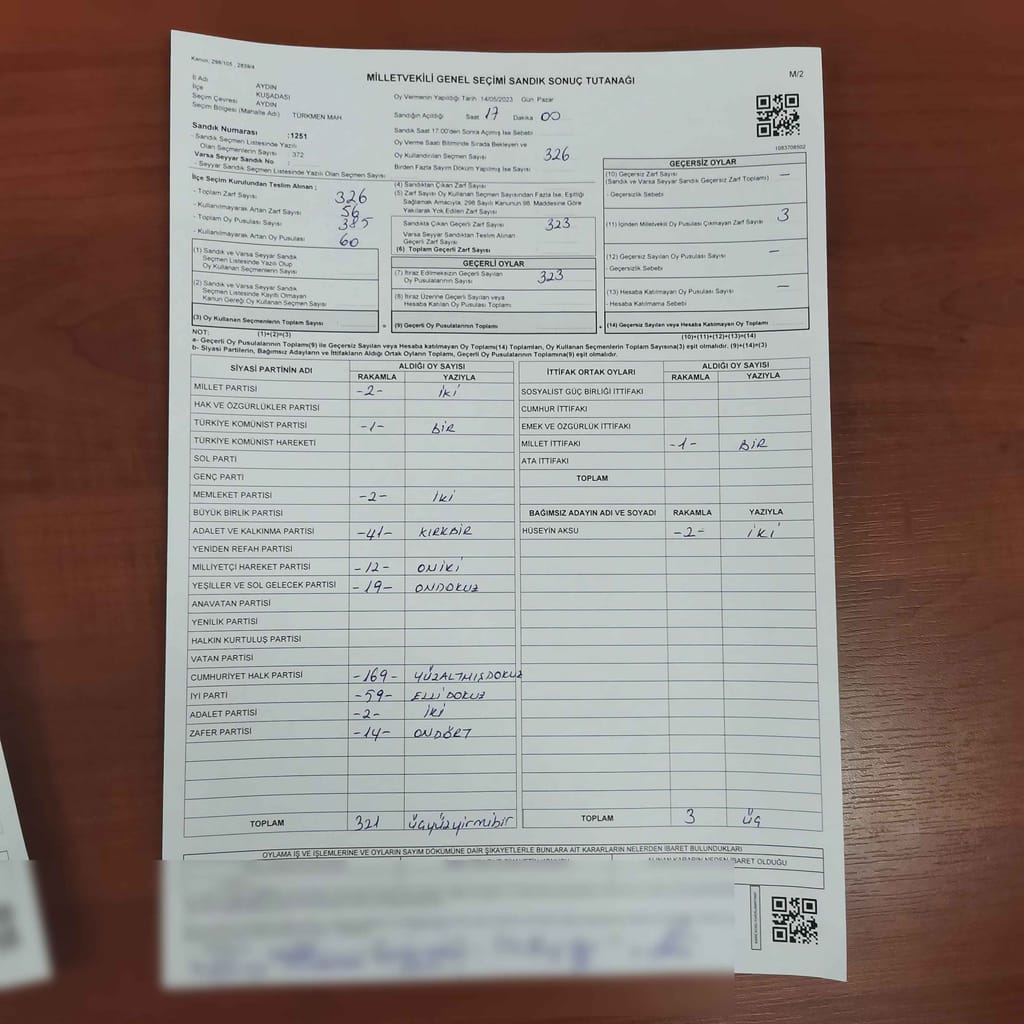 Kanun, 298/105 , 2839/4
MİLLETVEKİLİ GENEL SEÇİMİ SANDIK SONUÇ TUTANAĞI
M/2
İl Adı AYDIN
İlçe KUŞADASI
Seçim Çevresi AYDIN
Seçim Bölgesi (Mahalle Adı) TÜRKMEN MAH
Sandık Numarası :1251
- Sandık Seçmen Listesinde Yazılı
Olan Seçmenlerin Sayısı : 372
Varsa Seyyar Sandık No :
- Seyyar Sandık Seçmen Listesinde Yazılı Olan Seçmen Sayısı
Oy Vermenin Yapıldığı Tarih 14/05/2023 Gün Pazar
Sandığın Açıldığı Saat 17 Dakika 00
Sandık Saat 17:00'den Sonra Açılmış İse Sebebi
Oy Verme Saati Bitiminde Sırada Bekleyen ve
Oy Kullandırılan Seçmen Sayısı 326
Birden Fazla Sayım Döküm Yapılmış İse Sayısı
1083708502
İlçe Seçim Kurulundan Teslim Alınan ;
- Toplam Zarf Sayısı 326
- Kullanılmayarak Artan Zarf Sayısı 56
- Toplam Oy Pusulası Sayısı 385
- Kullanılmayarak Artan Oy Pusulası 60
(1) Sandık ve Varsa Seyyar Sandık
Seçmen Listesinde Yazılı Olup
Oy Kullanan Seçmenlerin Sayısı
(2) Sandık ve Varsa Seyyar Sandık
Seçmen Listesinde Kayıtlı Olmayan
Kanun Gereği Oy Kullanan Seçmen Sayısı
(3) Oy Kullanan Seçmenlerin Toplam Sayısı
(1)+(2)=(3)
(4) Sandıktan Çıkan Zarf Sayısı
(5) Zarf Sayısı Oy Kullanan Seçmen Sayısından Fazla İse, Eşitliği
Sağlamak Amacıyla, 298 Sayılı Kanunun 98. Maddesine Göre
Yakılarak Yok Edilen Zarf Sayısı
Sandıkta Çıkan Geçerli Zarf Sayısı 323
Varsa Seyyar Sandıktan Teslim Alınan
Geçerli Zarf Sayısı
(6) Toplam Geçerli Zarf Sayısı
GEÇERLİ OYLAR
(7) İtiraz Edilmeksizin Geçerli Sayılan
Oy Pusulalarının Sayısı 323
(8) İtiraz Üzerine Geçerli Sayılan veya
Hesaba Katılan Oy Pusulası Toplamı
= (9) Geçerli Oy Pusulalarının Toplamı +
GEÇERSİZ OYLAR
(10) Geçersiz Zarf Sayısı —
(Sandık ve Varsa Seyyar Sandık Geçersiz Zarf Toplamı)
- Geçersizlik Sebebi
(11) İçinden Milletvekili Oy Pusulası Çıkmayan Zarf Sayısı 3
(12) Geçersiz Sayılan Oy Pusulası Sayısı —
- Geçersizlik Sebebi
(13) Hesaba Katılmayan Oy Pusulası Sayısı —
- Hesaba Katılmama Sebebi
(14) Geçersiz Sayılan veya Hesaba Katılmayan Oy Toplamı
(10)+(11)+(12)+(13)=(14)
NOT:
a- Geçerli Oy Pusulalarının Toplamı(9) ile Geçersiz Sayılan veya Hesaba Katılmayan Oy Toplamı(14) Toplamları, Oy Kullanan Seçmenlerin Toplam Sayısına(3) eşit olmalıdır. (9)+(14)=(3)
b- Siyasi Partilerin, Bağımsız Adayların ve İttifakların Aldığı Ortak Oyların Toplamı, Geçerli Oy Pusulalarının Toplamına(9) eşit olmalıdır.
SİYASİ PARTİNİN ADI ALDIĞI OY SAYISI
RAKAMLA YAZIYLA
MİLLET PARTİSI -2- İKİ
HAK VE ÖZGÜRLÜKLER PARTİSİ
TÜRKİYE KOMÜNİST PARTİSİ -1- BİR
TÜRKİYE KOMÜNİST HAREKETİ
SOL PARTİ
GENÇ PARTİ
MEMLEKET PARTİSİ -2- İKİ
BÜYÜK BİRLİK PARTİSİ
ADALET VE KALKINMA PARTİSİ -41- KIRKBİR
YENİDEN REFAH PARTİSİ
MİLLİYETÇİ HAREKET PARTİSİ -12- ONİKİ
YEŞİLLER VE SOL GELECEK PARTİSİ -19- ONDOKUZ
ANAVATAN PARTİSİ
YENİLİK PARTİSİ
HALKIN KURTULUŞ PARTİSİ
VATAN PARTİSİ
CUMHURİYET HALK PARTİSİ -169- YÜZALTMIŞDOKUZ
İYİ PARTİ -59- ELLİDOKUZ
ADALET PARTİSİ -2- İKİ
ZAFER PARTİSİ -14- ONDÖRT
TOPLAM 321 üçyüzyirmibir
İTTİFAK ORTAK OYLARI ALDIĞI OY SAYISI
RAKAMLA YAZIYLA
SOSYALİST GÜÇ BİRLİĞİ İTTİFAKI
CUMHUR İTTİFAKI
EMEK VE ÖZGÜRLÜK İTTİFAKI
MİLLET İTTİFAKI -1- BİR
ATA İTTİFAKI
TOPLAM
BAĞIMSIZ ADAYIN ADI VE SOYADI RAKAMLA YAZIYLA
HÜSEYİN AKSU -2- İKİ
TOPLAM 3 üç
OYLAMA İŞ VE İŞLEMLERİNE VE OYLARIN SAYIM DÖKÜMÜNE DAİR ŞİKAYETLERLE BUNLARA AİT KARARLARIN NELERDEN İBARET BULUNDUKLARI
ALINAN KARARIN NEDEN İBARET OLDUĞU